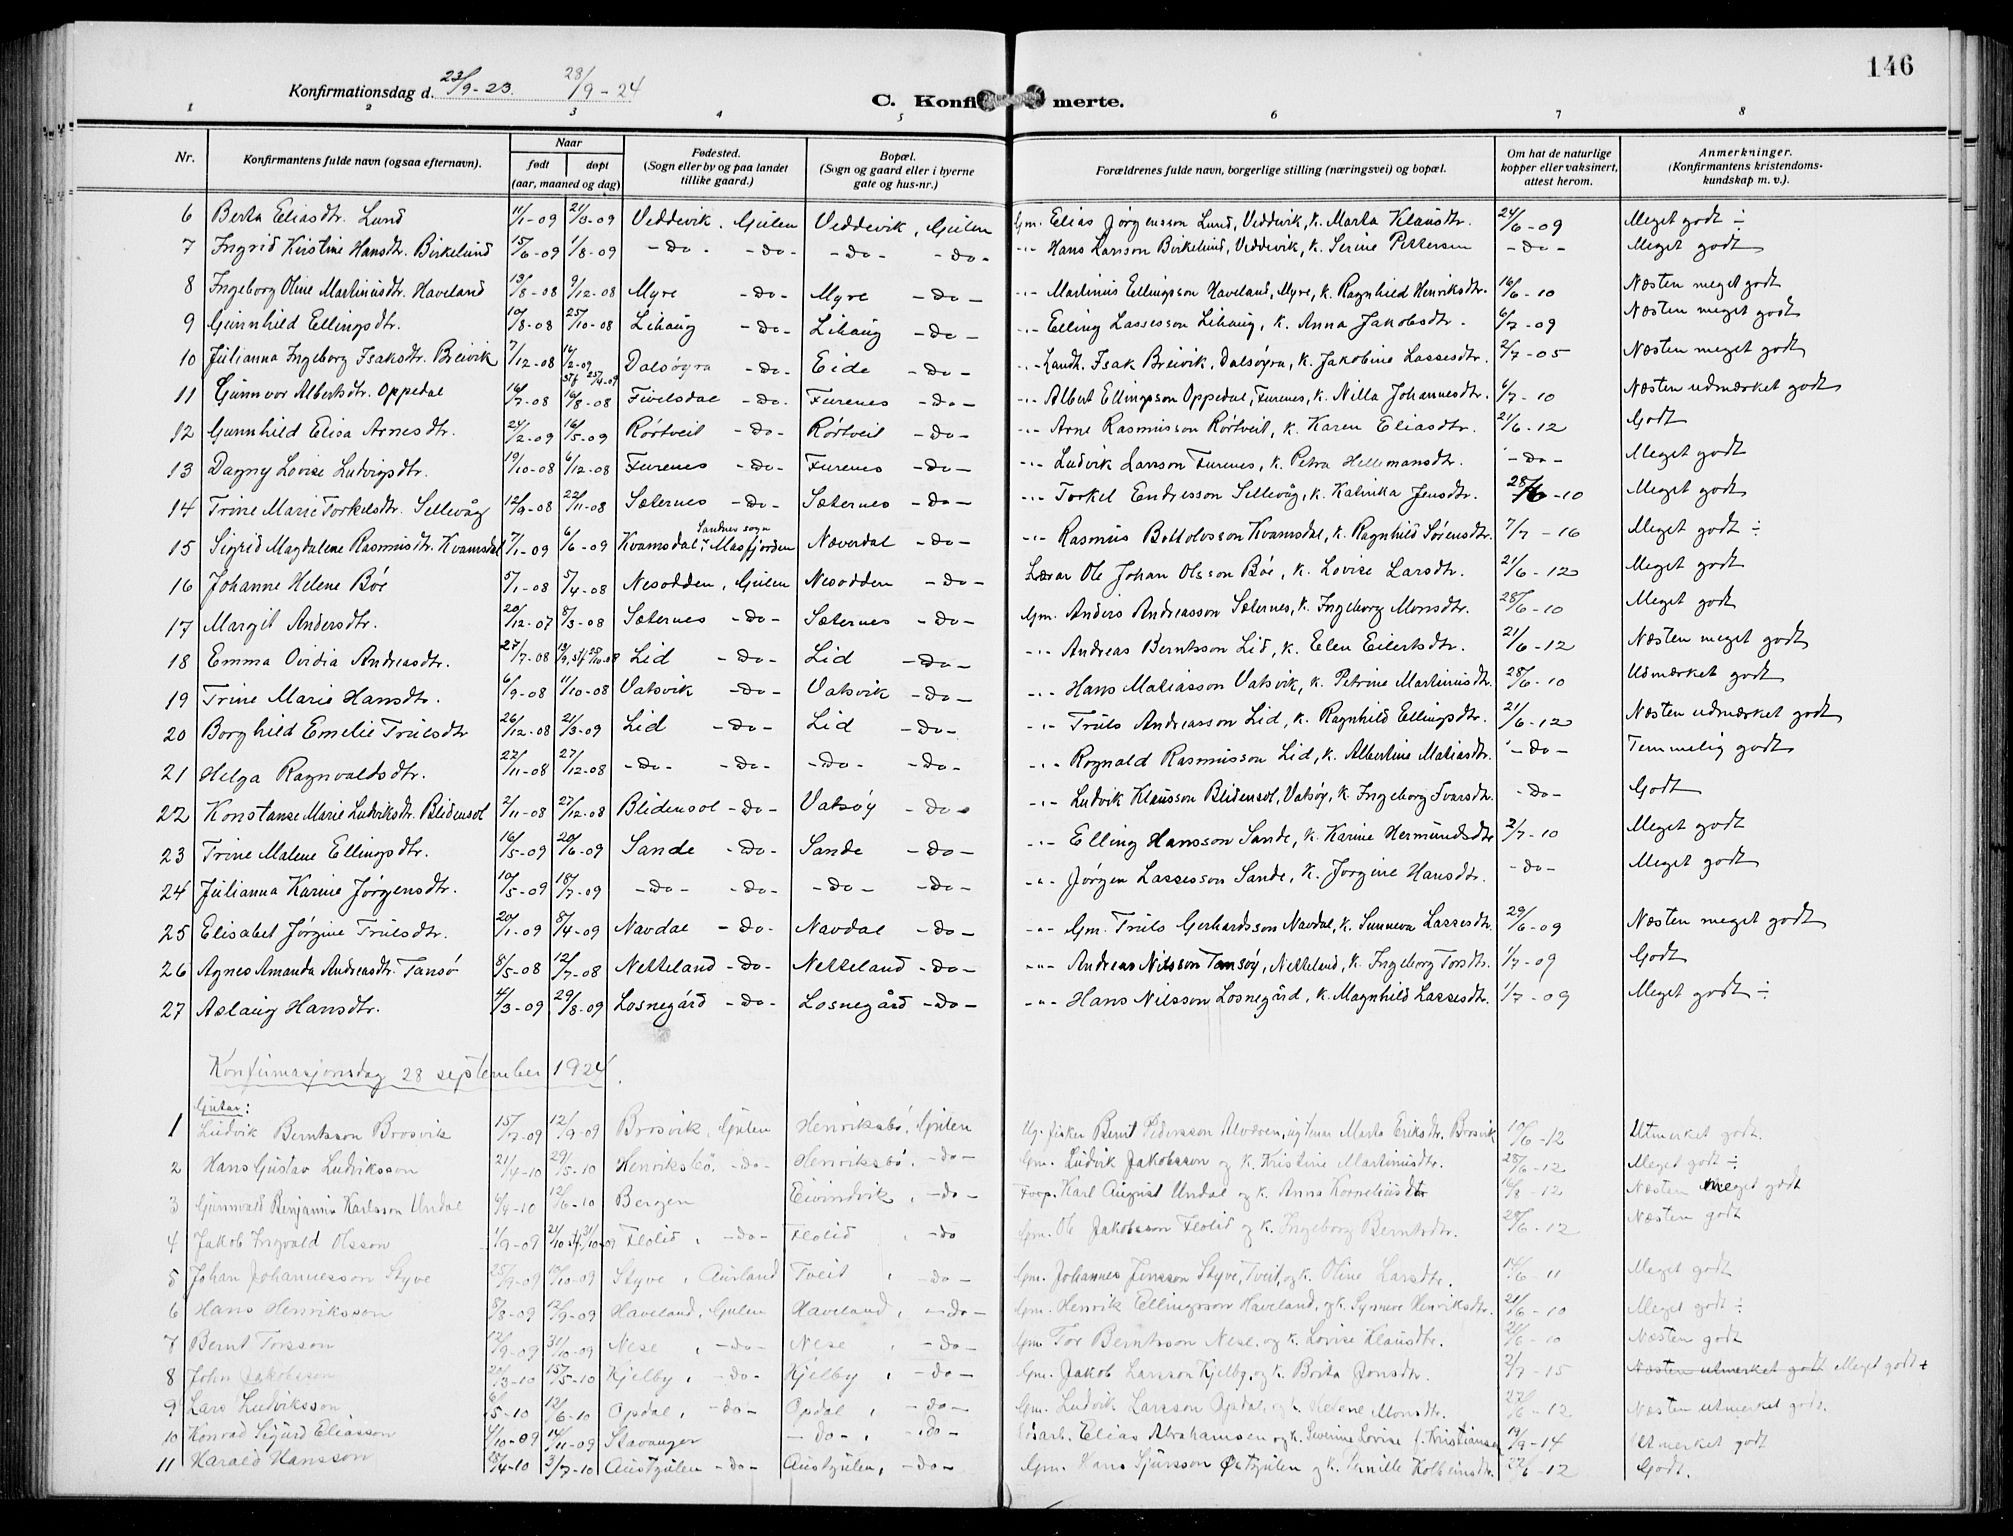 146
Konfirmationsdag d. 23/9-23. 28/9-24
C. Konfi merte.
1 2 3 4 5 6 7 8
Nr. Konfirmantens fulde navn (ogsaa efternavn). Naar født døpt (aar, maaned og dag) Fødested. (Sogn eller by og paa landet tillike gaard.) Bopæl. (Sogn og gaard eller i byerne gate og hus-nr.) Forældrenes fulde navn, borgerlige stilling (næringsvei) og bopæl. Om hat de naturlige kopper eller vaksinert, attest herom. Anmerkninger. (Konfirmantens kristendoms-kundskap m. v.).
6 Berta Eliasdtr. Lund 11/1-09 21/3-09 Veddevik, Gulen Veddevik, Gulen Gm. Elias Jørgensson Lund, Veddevik, k. Marta Klausdtr. 24/6-09 Meget godt ÷
7 Ingrid Kirstine Hansdtr. Birkelund 15/6-09 1/8-09 -do- -do- -do- -do- -"- Hans Larsson Birkelund, Veddevik, k. Serine Pettersen -do- Meget godt
8 Ingeborg Oline Martinusdtr. Haveland 13/8-08 9/12-08 Myre -do- Myre -do- -"- Martinus Ellingsson Haveland, Myre, k. Ragnhild Henriksdtr. 16/6-10 Næsten meget godt
9 Gunnhild Ellingsdtr. 10/8-08 25/10-08 Lihaug -do- Lihaug -do- -"- Elling Lassesson Lihaug, k. Anna Jakobsdtr. 6/7-09 Næsten meget godt
10 Julianna Ingeborg Isaksdtr. Breivik 7/12-08 16/2-09 stf 25/4-09 Dalsøyra -do- Eide -do- -"- Landh. Isak Breivik, Dalsøyra, k. Jakobine Lassesdtr. 2/7-05 Næsten meget godt
11 Gunnvor Albertsdtr. Oppedal 16/7-08 16/8-08 Fivelsdal -do- Furenes -do- -"- Albert Ellingsson Oppedal, Furenes, k. Nilla Johannesdtr. 6/7-10 Næsten udmærket godt
12 Gunnhild Elisa Arnesdtr. 21/2-09 16/5-09 Rørtveit -do- Rørtveit -do- -"- Arne Rasmusson Rørtveit, k. Karen Eliasdtr. 21/6-12 Godt
13 Dagny Lovise Ludvigsdtr. 19/10-08 6/12-08 Furenes -do- Furenes -do- -"- Ludvik Larsson Furenes, k. Petra Hellemansdtr. -do- Meget godt
14 Trine Marie Torkelsdtr. Sellevåg 12/9-08 22/11-08 Sæternes -do- Sæternes -do- -"- Torkel Endresson Sellevåg, k. Katinka Jensdtr. 28/6-10 Meget godt
15 Sigrid Magdalene Rasmusdtr. Kvamsdal 7/1-09 6/6-09 Kvamsdal, Sandnes sogn Masfjorden Næverdal -do- -"- Rasmus Bottolvsson Kvamsdal, k. Ragnhild Sørensdtr. 7/7-16 Meget godt ÷
16 Johanne Helene Bøe 5/1-08 5/4-08 Nesodden, Gulen Nesodden -do- Lærar Ole Johan Olsson Bøe, k. Lovise Larsdtr. 21/6-12 Meget godt
17 Margit Andersdtr. 20/12-07 8/3-08 Sæternes -do- Sæternes -do- Gm. Anders Andreasson Sæternes, k. Ingeborg Monsdtr. 28/6-10 Meget godt
18 Emma Ovidia Andreasdtr. 27/7-08 Lid -do- Lid -do- -"- Andreas Berntsson Lid, k. Elen Eilertsdtr. 21/6-12 Næsten meget godt
19 Trine Marie Hansdtr. 6/9-08 11/10-08 Vatsvik -do- Vatsvik -do- -"- Hans Matiasson Vatsvik, k. Petrine Martinusdtr. 28/6-10 Udmærket godt
20 Borghild Emelie Trulsdtr 26/12-08 21/3-09 Lid -do- Lid -do- -"- Truls Andreasson Lid, k. Ragnhild Ellingsdtr. 21/6-12 Næsten udmærket godt
21 Helga Ragnvaldsdtr. 22/11-08 27/12-08 -do- -do- -do- -do- -"- Rognald Rasmusson Lid, k. Albertine Matiasdtr. -do- Temmelig godt
22 Konstanse Marie Ludviksdtr. Blidensol 2/11-08 27/12-08 Blidensol -do- Vatsøy -do- -"- Ludvik Klausson Blidensol, Vatsøy, k. Ingeborg Ivarsdtr. -do- Godt
23 Trine Malene Ellingsdtr. 16/5-09 20/6-09 Sande -do- Sande -do- -"- Elling Hansson Sande, k. Karine Hermundsdtr 2/7-10 Meget godt
24 Julianna Karine Jørgensdtr. 10/5-09 18/7-09 -do- -do- -do- -do- -"- Jørgen Lassesson Sande, k. Jorgine Hansdtr. -do- Meget godt
25 Elisabet Jørgine Trulsdtr. 20/1-09 8/4-09 Navdal -do- Navdal -do- -"- Gm. Truls Gerhardsson Navdal, k. Sunneva Lassesdtr. 29/6-09 Næsten meget godt
26 Agnes Amanda Andreasdtr. Tansø 8/5-08 12/7-08 Netteland -do- Netteland -do- -"- Andreas Nilsson Tansøy, Netteland, k. Ingeborg Torsdtr. 1/7-09 Godt
27 Aslaug Hansdtr. 4/3-09 29/8-09 Losnegård -do- Losnegård -do- -"- Hans Nilsson Losnegård, k. Magnhild Lassesdtr. 1/7-09 Meget godt ÷
Konfirmasjonsdag 28 september 1924.
Gutar:
1 Ludvik Berntsson Brosvik 15/7-09 12/9-09 Brosvik, Gulen Henriksbø, Gulen Ug. fisker Bernt Pedersson Marta Eriksdtr. Brosvik 10/6-12 Utmerket godt.
2 Hans Gustav Ludviksson 21/4-10 29/5-10 Henriksbø, -do- Henriksbø, -do- Gm. Ludvik Jakobsson og k. Kristine Martinusdtr. 28/6-12 Meget godt ÷
3 Gunnvald Benjamin Karlsson Undal 6/4-10 12/6-10 Bergen Eivindvik, -do- Karl August Undal og k. Anna Korneliusdtr 16/8-12 Næsten meget godt
4 Jakob Ingvald Olsson 1/9-09 Flolid, -do- Flolid, -do Gm. Ole Jakobsson Flolid og k. Ingeborg Berntsdtr. 28/6-12 Næsten godt
5 Johan Johannesson Styve 25/9-09 10/10-09 Styve, Aurland Tveit, -do- Gm. Johannes Jensson Styve, Tveit, og k. Oline Larsdtr. 14/6-11 Meget godt
6 Hans Henriksson 8/8-09 12/9-09 Haveland, Gulen Haveland, -do- Gm. Henrik Ellingsson Haveland, og k. Synneve Henriksdtr. 21/6-10 Meget godt ÷
7 Bernt Torsson 12/9-09 31/10-09 Nese, -do- Nese, -do- Gm. Tor Berntsson Nese, og k. Lovise Klausdtr. 21/6-10 Næsten godt
8 John Jakobsson 20/3-10 15/5-10 Kjelby, -do- Kjelby, -do- Gm. Jakob Larsson Kjelby, og k. Berta Jonsdtr. 2/7-15 Næsten utmerket godt Meget godt +
9 Lars Ludviksson 5-10 12/6-10 Opdal, -do- Opdal, -do- Gm. Ludvik Larsson Opdal, og k. Helene Monsdtr. 22/6-12 Næsten utmerket godt.
10 Konrad Sigurd Eliasson 4/10-09 14/11-09 Stavanger -do-, -do- Elias Abrahamsen og k. Severine Lovise f. Kristiansen 19/9-14 Utmerket godt
11 Harald Hansson 4-10 3/7-10 Austgulen -do- Austgulen, -do- Gm. Hans Sjursson Østgulen og k. Pernille Kolbeinsdtr. 22/6-12 Godt.